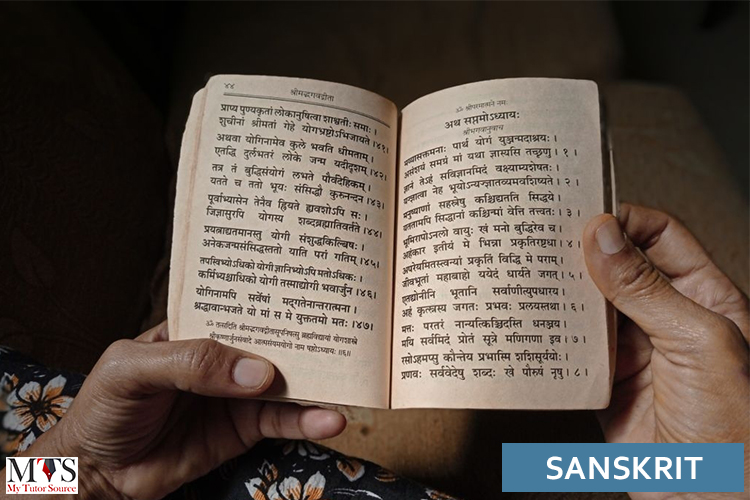 ४४
श्रीमद्भगवद्गीता
प्राप्य पुण्यकृतां लोकानुषित्वा शाश्वतीः समाः ।
शुचीनां श्रीमतां गेहे योगभ्रष्टोऽभिजायते ।४१।
अथवा योगिनामेव कुले भवति धीमताम् ।
एतद्धि दुर्लभतरं लोके जन्म यदीदृशम् ।४२।
तत्र तं बुद्धिसंयोगं लभते पौर्वदेहिकम् ।
यतते च ततो भूयः संसिद्धौ कुरुनन्दन ।४३।
पूर्वाभ्यासेन तेनैव ह्रियते ह्यवशोऽपि सः ।
जिज्ञासुरपि योगस्य शब्दब्रह्मातिवर्तते ।४४।
प्रयत्नाद्यतमानस्तु योगी संशुद्धकिल्बिषः ।
अनेकजन्मसंसिद्धस्ततो याति परां गतिम् ।४५।
तपस्विभ्योऽधिको योगी ज्ञानिभ्योऽपि मतोऽधिकः ।
कर्मिभ्यश्चाधिको योगी तस्माद्योगी भवार्जुन ।४६।
योगिनामपि सर्वेषां मद्गतेनान्तरात्मना ।
श्रद्धावान्भजते यो मां स मे युक्ततमो मतः ।४७।
ॐ तत्सदिति श्रीमद्भगवद्गीतासूपनिषत्सु ब्रह्मविद्यायां योगशास्त्रे
श्रीकृष्णार्जुनसंवादे आत्मसंयमयोगो नाम षष्ठोऽध्यायः ॥६॥
ॐ श्रीपरमात्मने नमः
अथ सप्तमोऽध्यायः
श्रीभगवानुवाच
मय्यासक्तमनाः पार्थ योगं युञ्जन्मदाश्रयः ।
असंशयं समग्रं मां यथा ज्ञास्यसि तच्छृणु । १ ।
ज्ञानं तेऽहं सविज्ञानमिदं वक्ष्याम्यशेषतः ।
यज्ज्ञात्वा नेह भूयोऽन्यज्ज्ञातव्यमवशिष्यते । २ ।
मनुष्याणां सहस्रेषु कश्चिद्यतति सिद्धये ।
यततामपि सिद्धानां कश्चिन्मां वेत्ति तत्त्वतः । ३ ।
भूमिरापोऽनलो वायुः खं मनो बुद्धिरेव च ।
अहंकार इतीयं मे भिन्ना प्रकृतिरष्टधा । ४ ।
अपरेयमितस्त्वन्यां प्रकृतिं विद्धि मे पराम् ।
जीवभूतां महाबाहो ययेदं धार्यते जगत् । ५ ।
एतद्योनीनि भूतानि सर्वाणीत्युपधारय ।
अहं कृत्स्नस्य जगतः प्रभवः प्रलयस्तथा । ६ ।
मत्तः परतरं नान्यत्किञ्चिदस्ति धनञ्जय ।
मयि सर्वमिदं प्रोतं सूत्रे मणिगणा इव । ७ ।
रसोऽहमप्सु कौन्तेय प्रभास्मि शशिसूर्ययोः ।
प्रणवः सर्ववेदेषु शब्दः खे पौरुषं नृषु । ८ ।
MTS
My Tutor Source
SANSKRIT